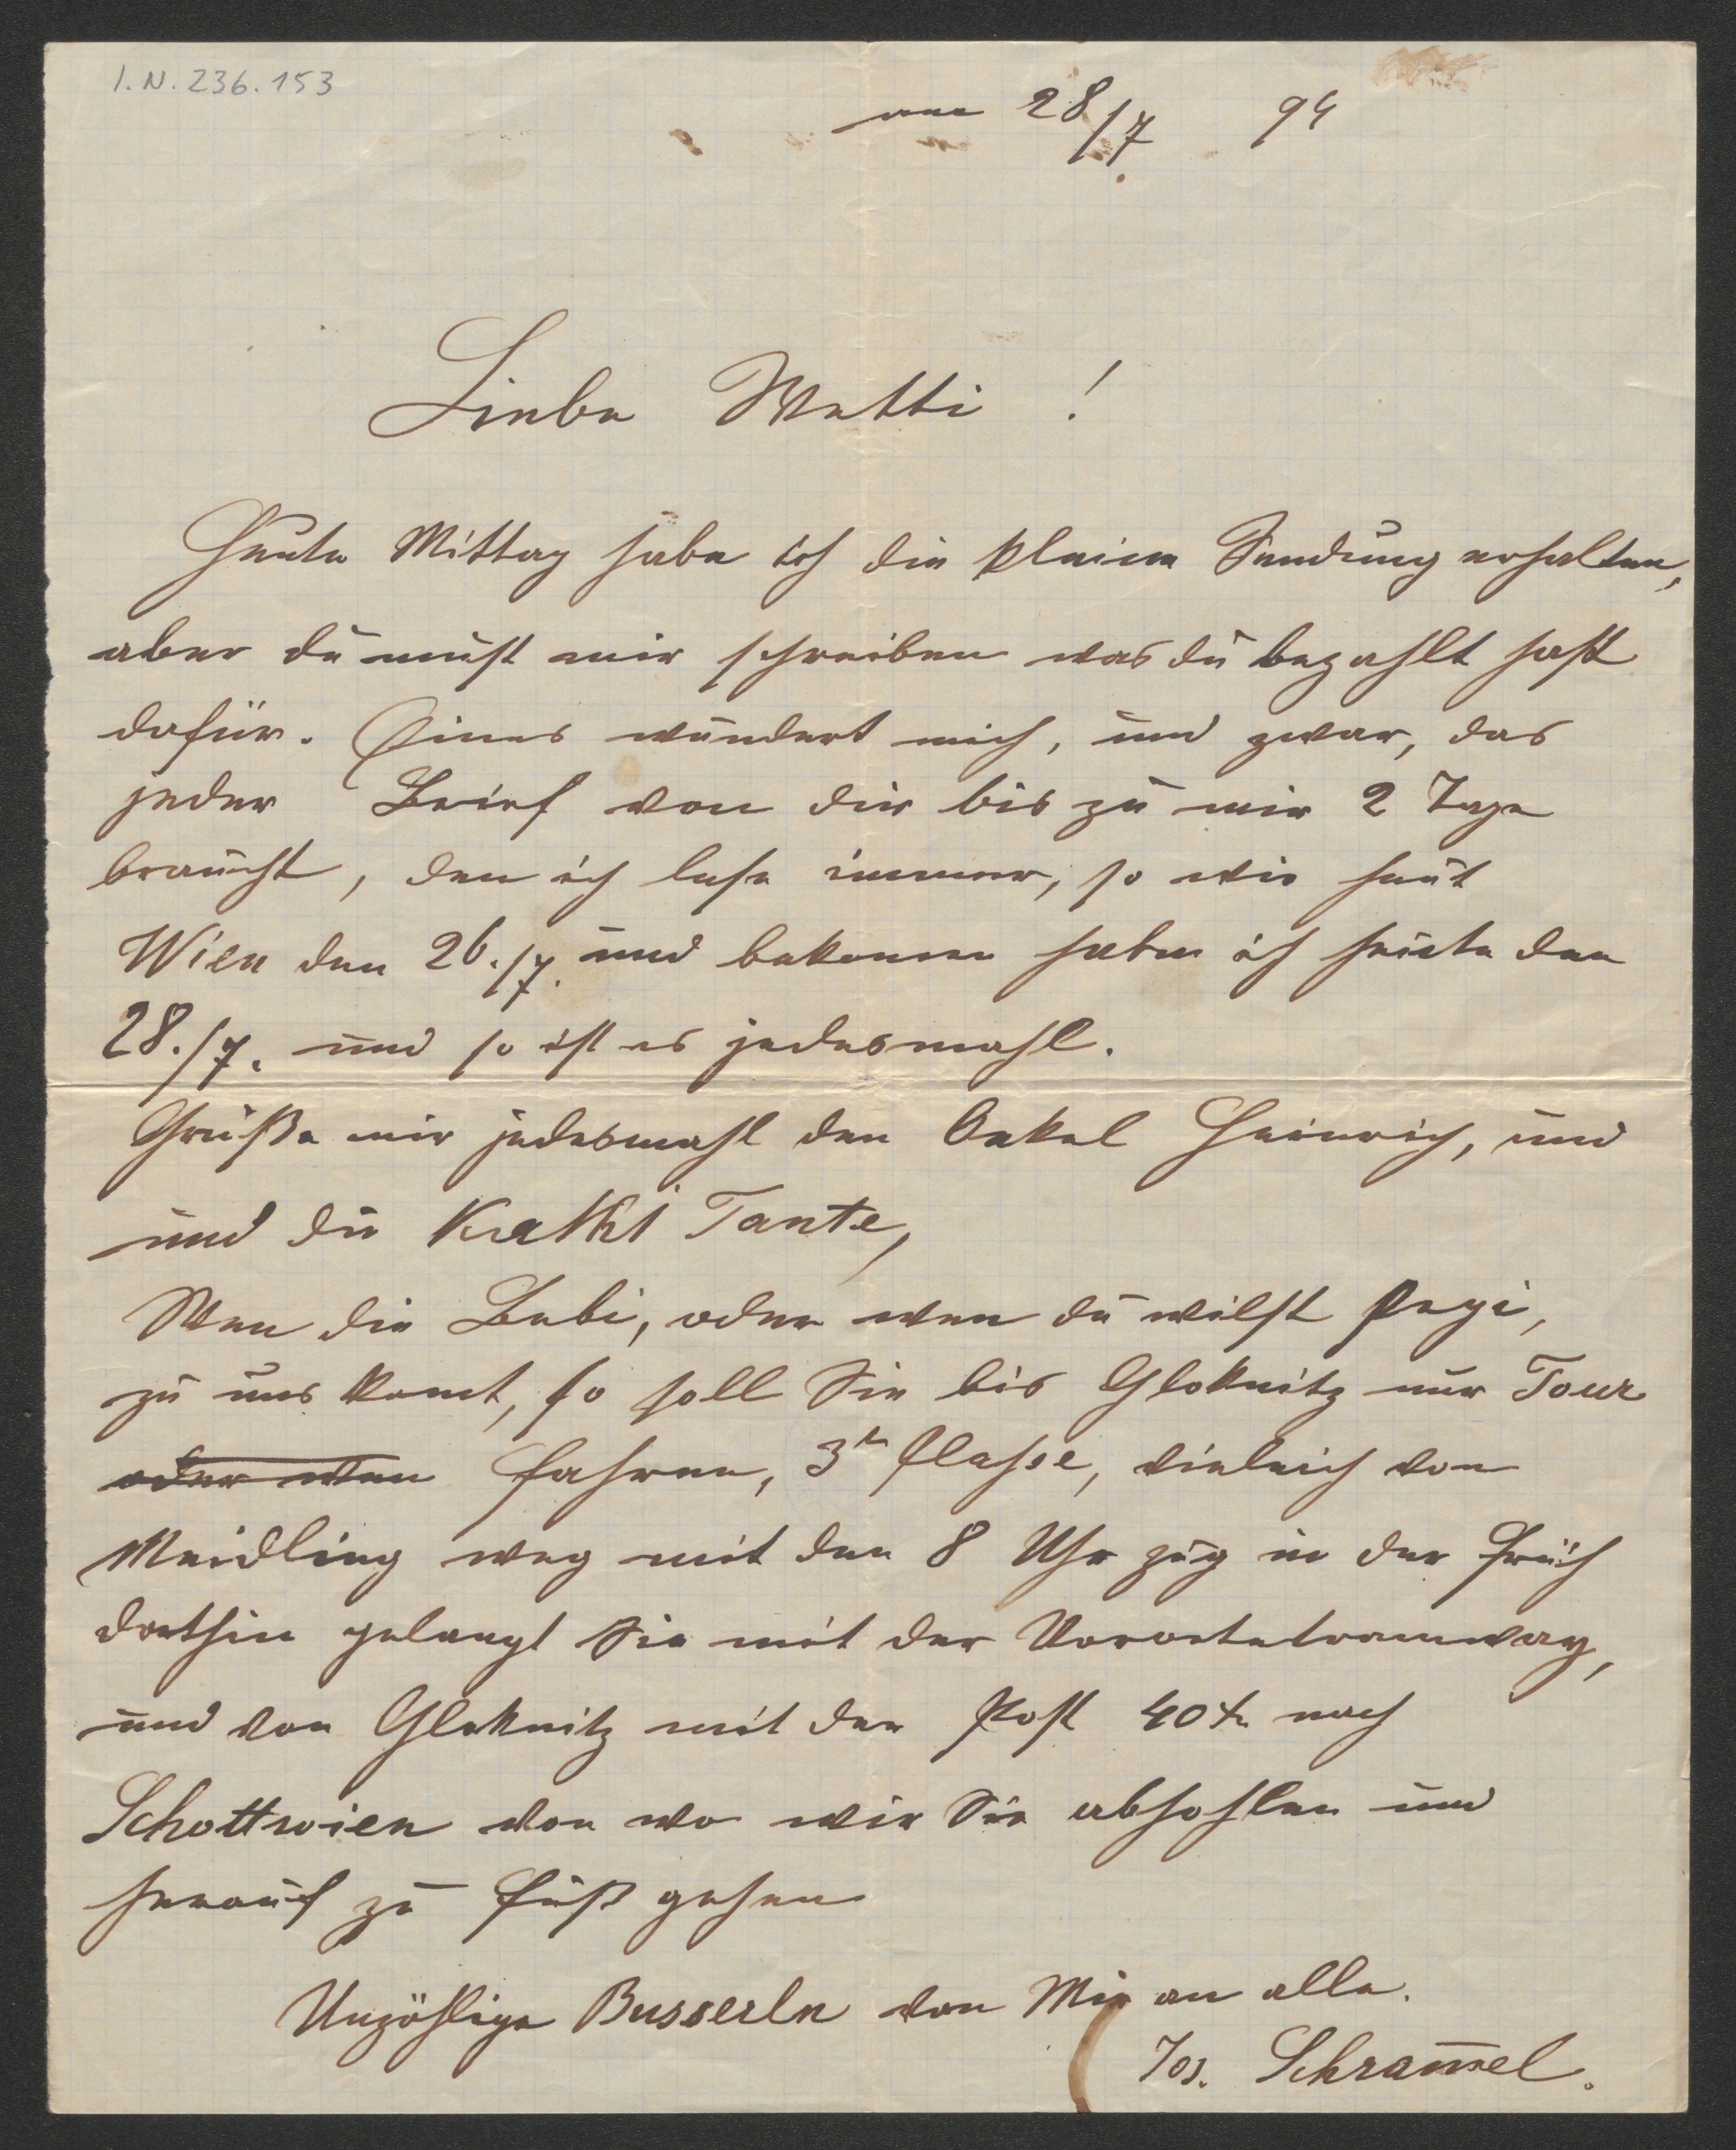 I.N. 236.153
am 28/7. 94
Liebe Wetti!
Heute Mittag habe ich die kleine Sendung erhalten,
aber du must mir schreiben was du bezahlt hast
dafür. Eines wundert mich, und zwar, das
jeder Brief von dir bis zu mir 2 Tage
braucht, den ich lese immer, so wie heut
Wien den 26./7. und bekomen habe ich heute den
28./7. und so ist es jedesmahl.
Grüße mir jedesmahl den Onkel Heinrich, und
und die Kathi Tante,
Wen die Bebi, oder wen du wilst Pepi,
zu uns komt, so soll Sie bis Gloknitz nur Tour
oder wen fahren, 3te Classe, vieleich von
Meidling weg mit den 8 Uhr zug in der früh
dorthin gelangt Sie mit der Vorortetramway,
und von Gloknitz mit der Post 40 x nach
Schottwien von wo wir Sie abhohlen und
herauf zu fuß gehen
Unzählige Busserln von Mir an alle.
Jos. Schram̅el.